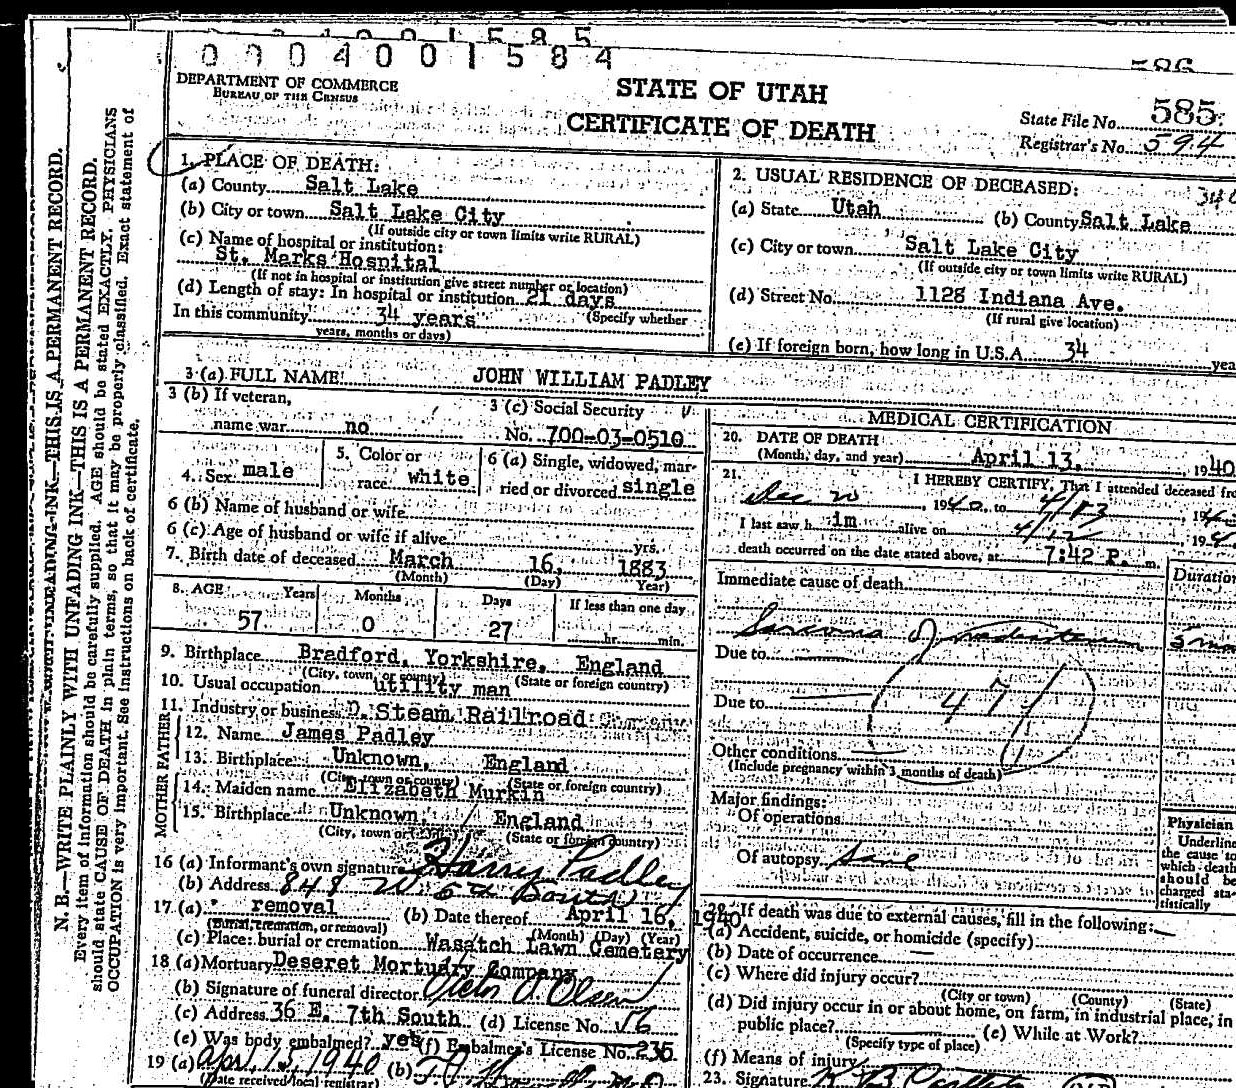 0 0 0 4 0 0 1 5 8 4
586
DEPARTMENT OF COMMERCE
BUREAU OF THE CENSUS
STATE OF UTAH
CERTIFICATE OF DEATH
State File No. 585
Registrar's No. 594
N. B.—WRITE PLAINLY WITH UNFADING INK—THIS IS A PERMANENT RECORD.
Every item of information should be carefully supplied. AGE should be stated EXACTLY. PHYSICIANS
should state CAUSE OF DEATH in plain terms, so that it may be properly classified. Exact statement of
OCCUPATION is very important. See instructions on back of certificate.
1. PLACE OF DEATH:
(a) County Salt Lake
(b) City or town Salt Lake City
(If outside city or town limits write RURAL)
(c) Name of hospital or institution:
St. Marks Hospital
(If not in hospital or institution give street number or location)
(d) Length of stay: In hospital or institution 21 days
(Specify whether
In this community 34 years
years, months or days)
2. USUAL RESIDENCE OF DECEASED:
(a) State Utah (b) County Salt Lake
(c) City or town Salt Lake City
(If outside city or town limits write RURAL)
(d) Street No. 1128 Indiana Ave.
(If rural give location)
(e) If foreign born, how long in U.S.A. 34 yea
3 (a) FULL NAME JOHN WILLIAM PADLEY
3 (b) If veteran,
name war no
3 (c) Social Security
No. 700-03-0510
4. Sex male
5. Color or
race white
6 (a) Single, widowed, mar-
ried or divorced single
6 (b) Name of husband or wife
6 (c) Age of husband or wife if alive yrs.
7. Birth date of deceased March 16, 1883
(Month) (Day) (Year)
8. AGE Years Months Days If less than one day
57 0 27 hr. min.
9. Birthplace Bradford, Yorkshire, England
(City, town, or county) (State or foreign country)
10. Usual occupation utility man
11. Industry or business D. Steam Railroad
FATHER
12. Name James Padley
13. Birthplace Unknown, England
(City, town or county) (State or foreign country)
MOTHER
14. Maiden name Elizabeth Murkin
15. Birthplace Unknown, England
(City, town or county) (State or foreign country)
16 (a) Informant's own signature Harry Padley
(b) Address 848 W 5th South
17. (a) removal (b) Date thereof April 16, 1940
(Burial, cremation, or removal) (Month) (Day) (Year)
(c) Place: burial or cremation Wasatch Lawn Cemetery
18 (a) Mortuary Deseret Mortuary Company
(b) Signature of funeral director Victor J. Olsen
(c) Address 36 E. 7th South (d) License No. 56
(e) Was body embalmed? yes (f) Embalmer's License No. 235
19 (a) Apr. 15, 1940 (b)
(Date received local registrar)
MEDICAL CERTIFICATION
20. DATE OF DEATH
(Month, day, and year) April 13, 1940
21. I HEREBY CERTIFY, That I attended deceased fro
Dec 20, 1940, to 4/13, 194
I last saw him alive on 4/12, 194
death occurred on the date stated above, at 7:42 P. m.
Immediate cause of death
Duration
Sarcoma of mediastinum
Due to
471
Due to
Other conditions
(Include pregnancy within 3 months of death)
Major findings:
Of operations
Of autopsy Same
Physician
Underline
the cause to
which death
should be
charged sta-
tistically
22. If death was due to external causes, fill in the following:
(a) Accident, suicide, or homicide (specify)
(b) Date of occurrence
(c) Where did injury occur?
(City or town) (County) (State)
(d) Did injury occur in or about home, on farm, in industrial place, in
public place? (e) While at Work?
(Specify type of place)
(f) Means of injury
23. Signature